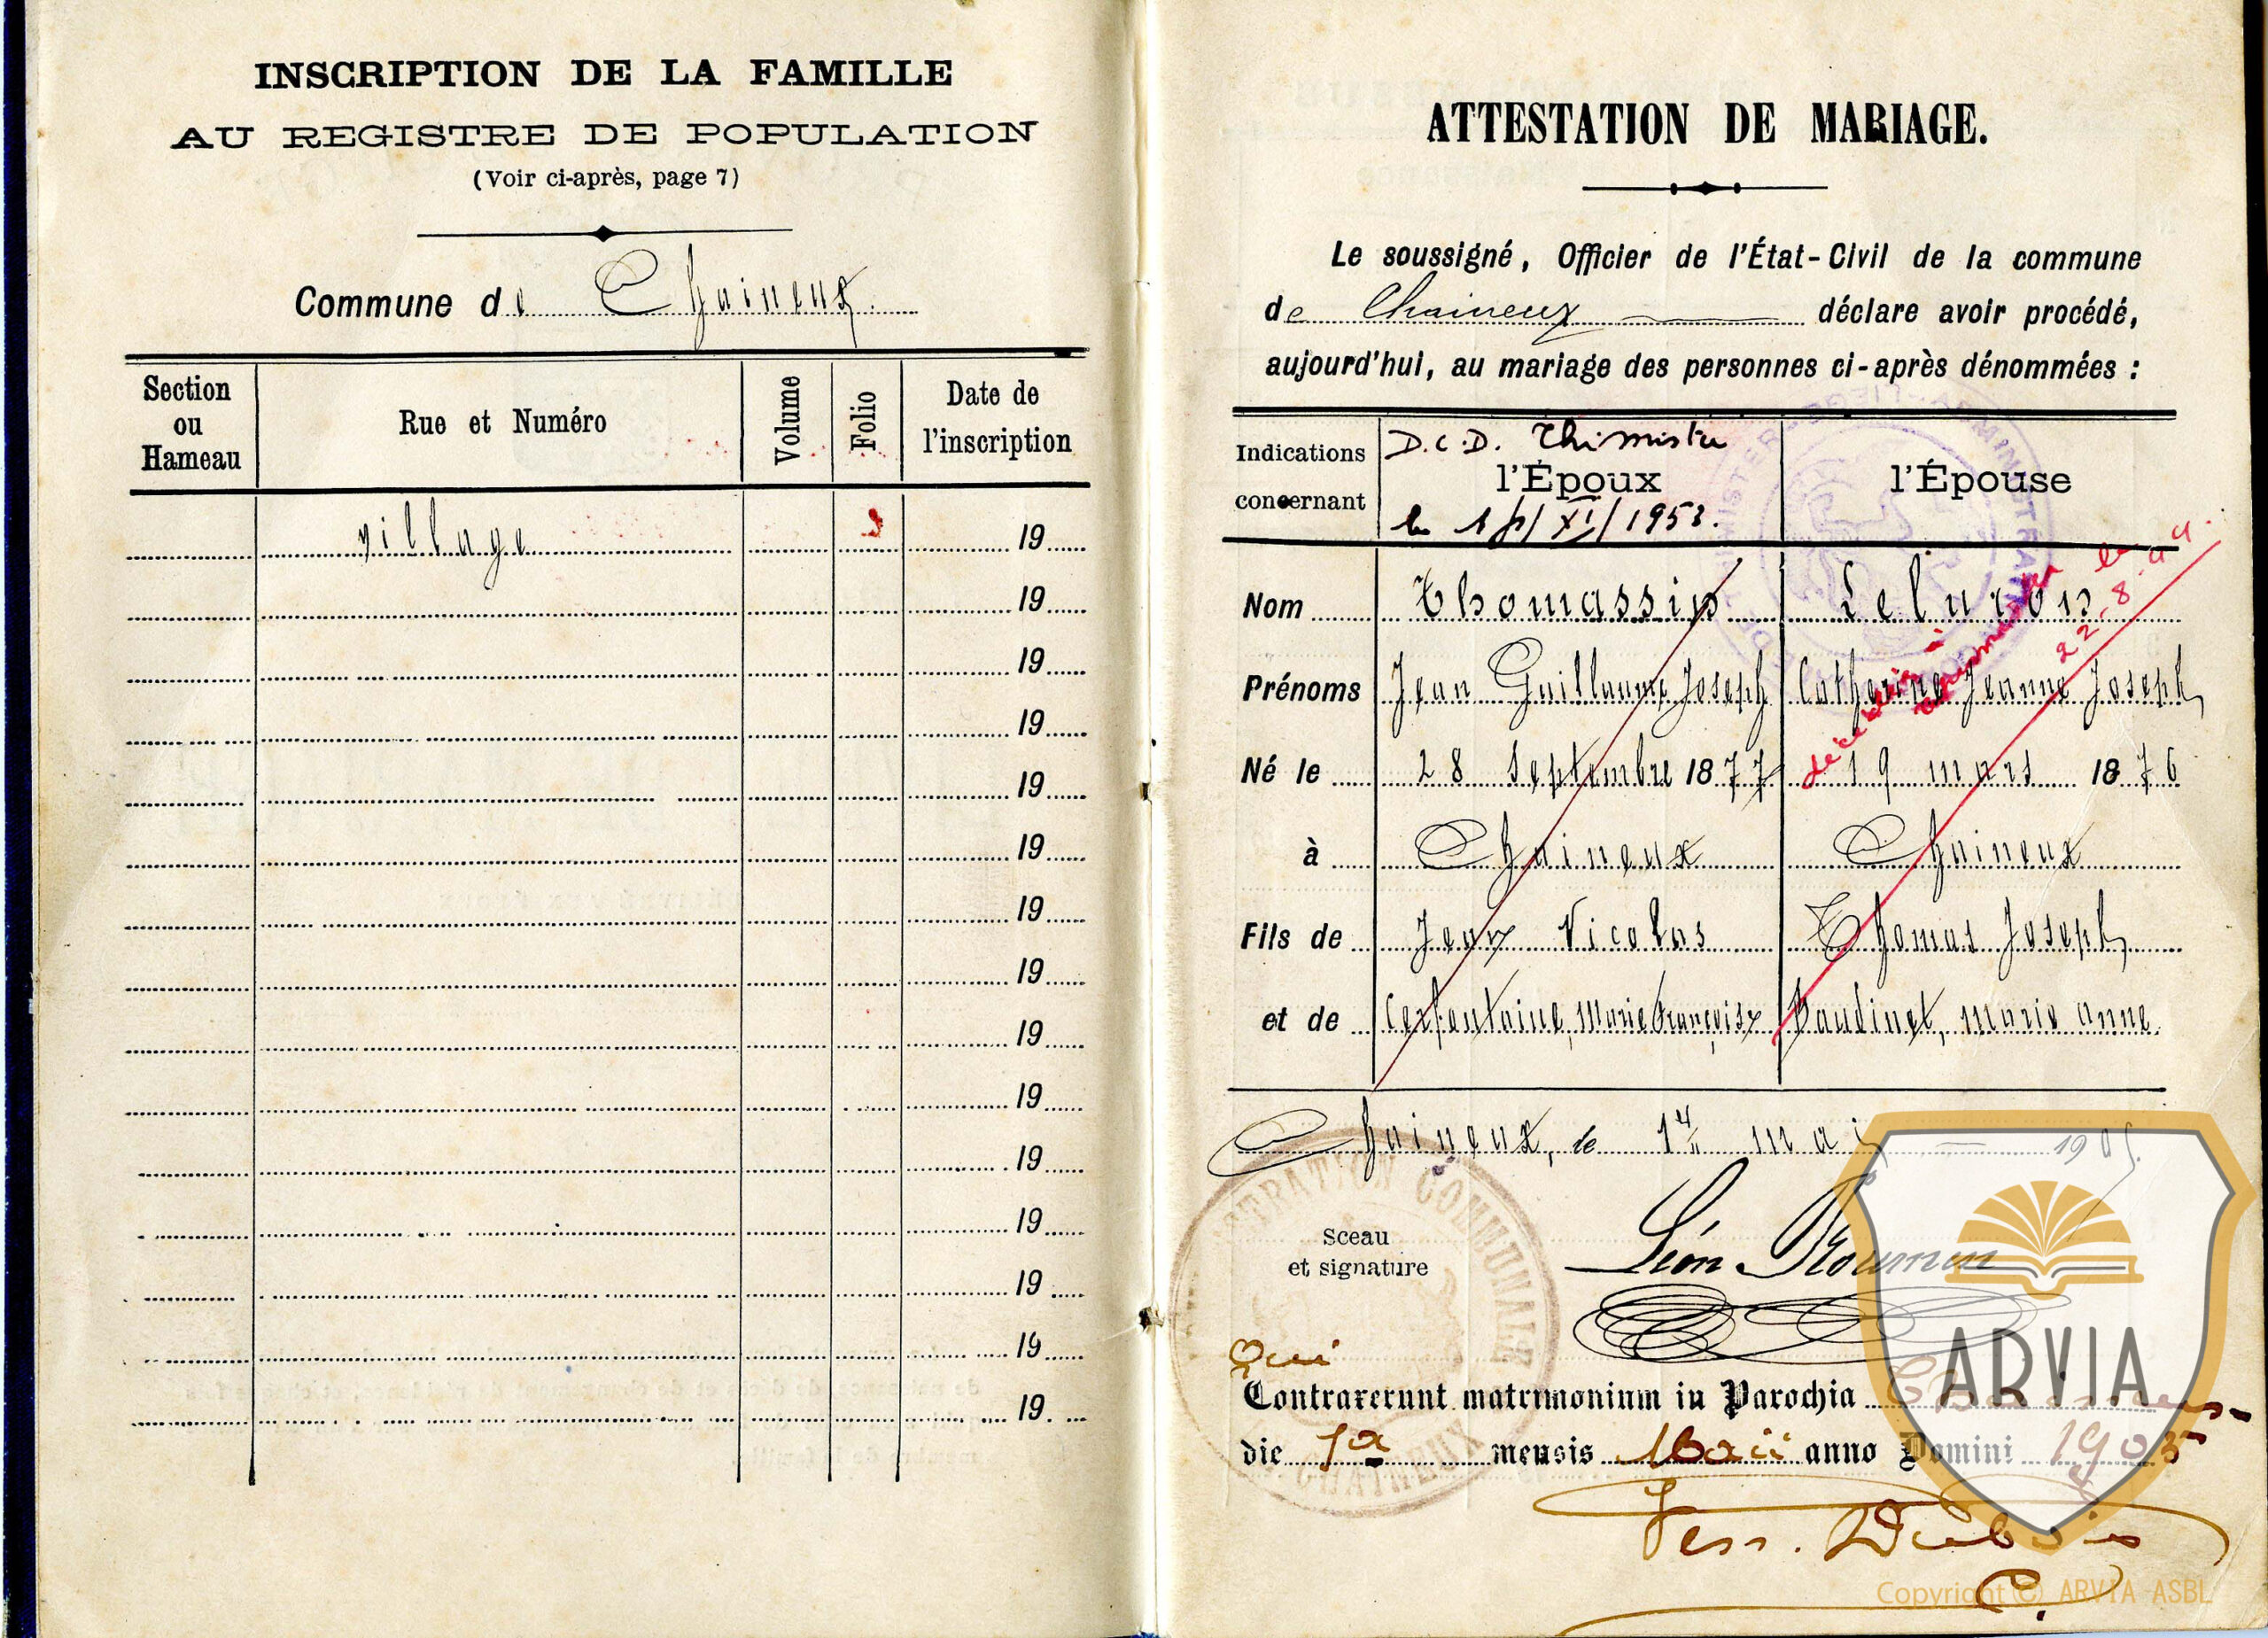 INSCRIPTION DE LA FAMILLE
AU REGISTRE DE POPULATION
(Voir ci-après, page 7)
Commune de Chaineux.
Section ou Hameau
Rue et Numéro
Volume
Folio
Date de l'inscription
village 19
19
19
19
19
19
19
19
19
19
19
19
19
19
19
ATTESTATION DE MARIAGE.
Le soussigné, Officier de l'État-Civil de la commune
de Chaineux déclare avoir procédé,
aujourd'hui, au mariage des personnes ci-après dénommées :
Indications concernant
D.C.D. Thimister
l'Époux
l'Épouse
Nom Thomassin
Prénoms Jean Guillaume Joseph Catherine Jeanne Joseph
Né le 28 Septembre 1877 19 mars 1876
à Chaineux Chaineux
Fils de Jean Nicolas Thomas Joseph
et de Cerfontaine, Marie Françoise marie anne.
décédée à le
22-8-44.
Chaineux, le mai 1905.
Sceau
et signature
Léon
ADMINISTRATION COMMUNALE
CHAINEUX
Qui
Contraxerunt matrimonium in Parochia
die 1a mensis Maii anno Domini 1905
ARVIA
Copyright © ARVIA ASBL